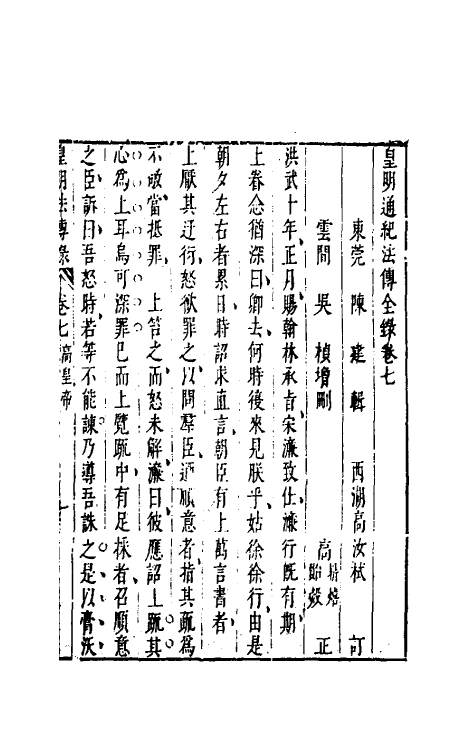 皇明通紀法傳全錄卷七
東莞 陳 建 輯 西湖高汝栻 訂
雲間 吳 楨增刪 高 正
洪武十年正月賜翰林承旨宋濂致仕濂行既有期
上眷念猶深曰卿去何時後來見朕乎姑徐徐行由是
朝夕左右者累日時詔求直言朝臣有上萬言書者
上厭其迂衍怒欲罪之以問羣臣迺順意者指其疏為
不敬當抵罪 上笞之而怒未解濂曰彼應詔上疏其
心為上耳烏可深罪巳而上覽疏中有足採者召順意
之臣訴曰吾怒時若等不能諫乃導吾誅之是以膏沃
皇明法傳彔 卷七 高皇帝